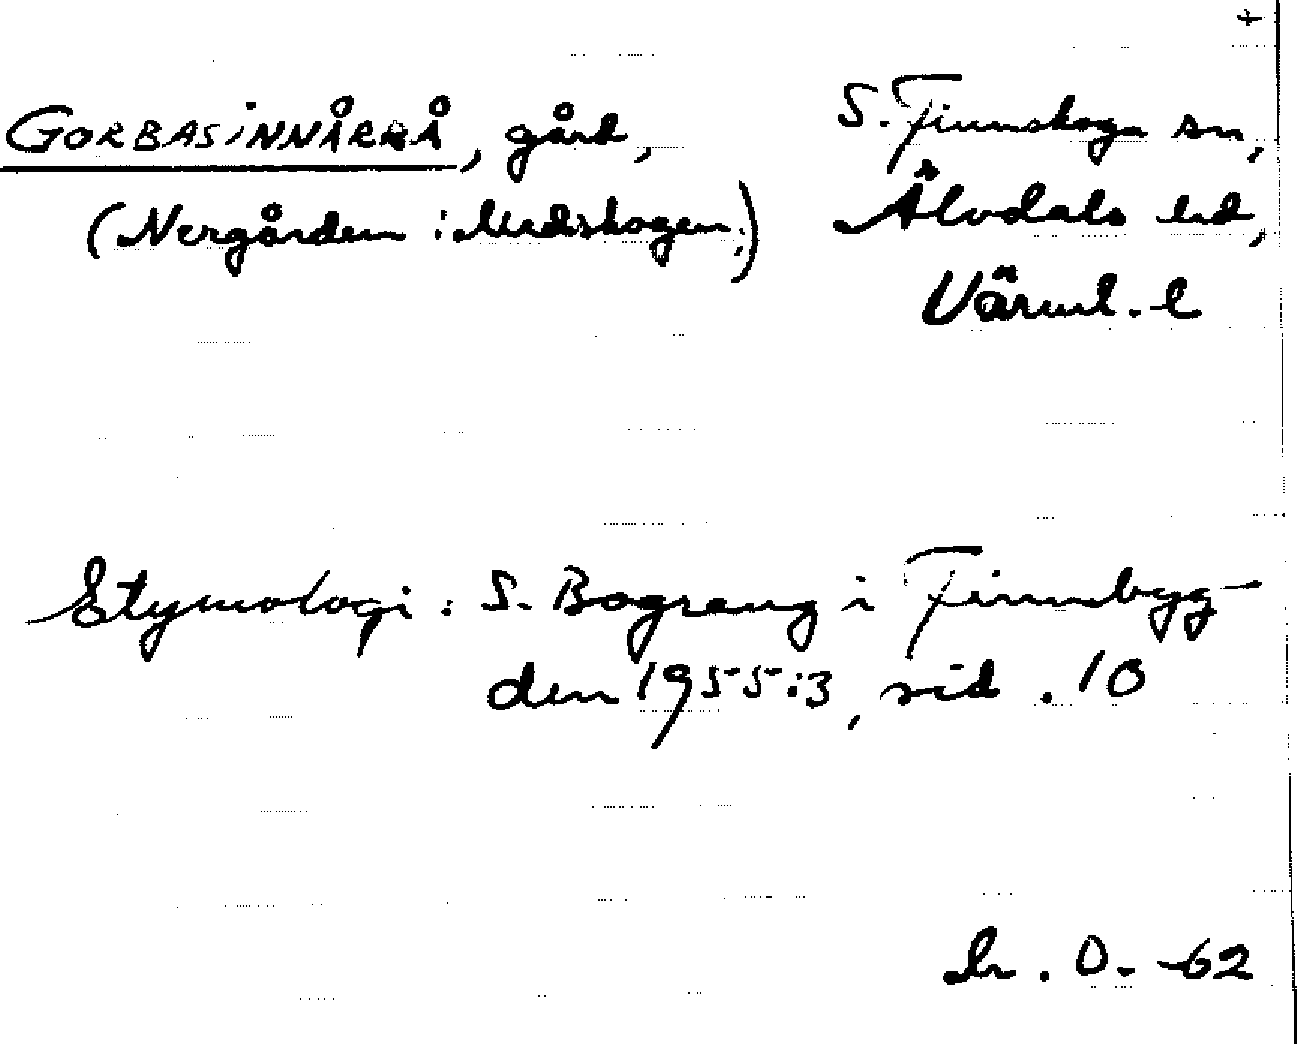 +
GORBASINNÅRRÅ, gård,
(Nergården i Medskogen.)
S. Finnskoga sn,
Älvdals hd,
Värml. l
Etymologi: S. Bograng i Finnbyg-
den 1955:3, sid. 10
O. -62